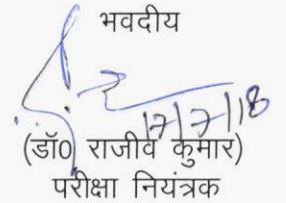 भवदीय
17/7/18
(डॉ0 राजीव कुमार)
परीक्षा नियंत्रक